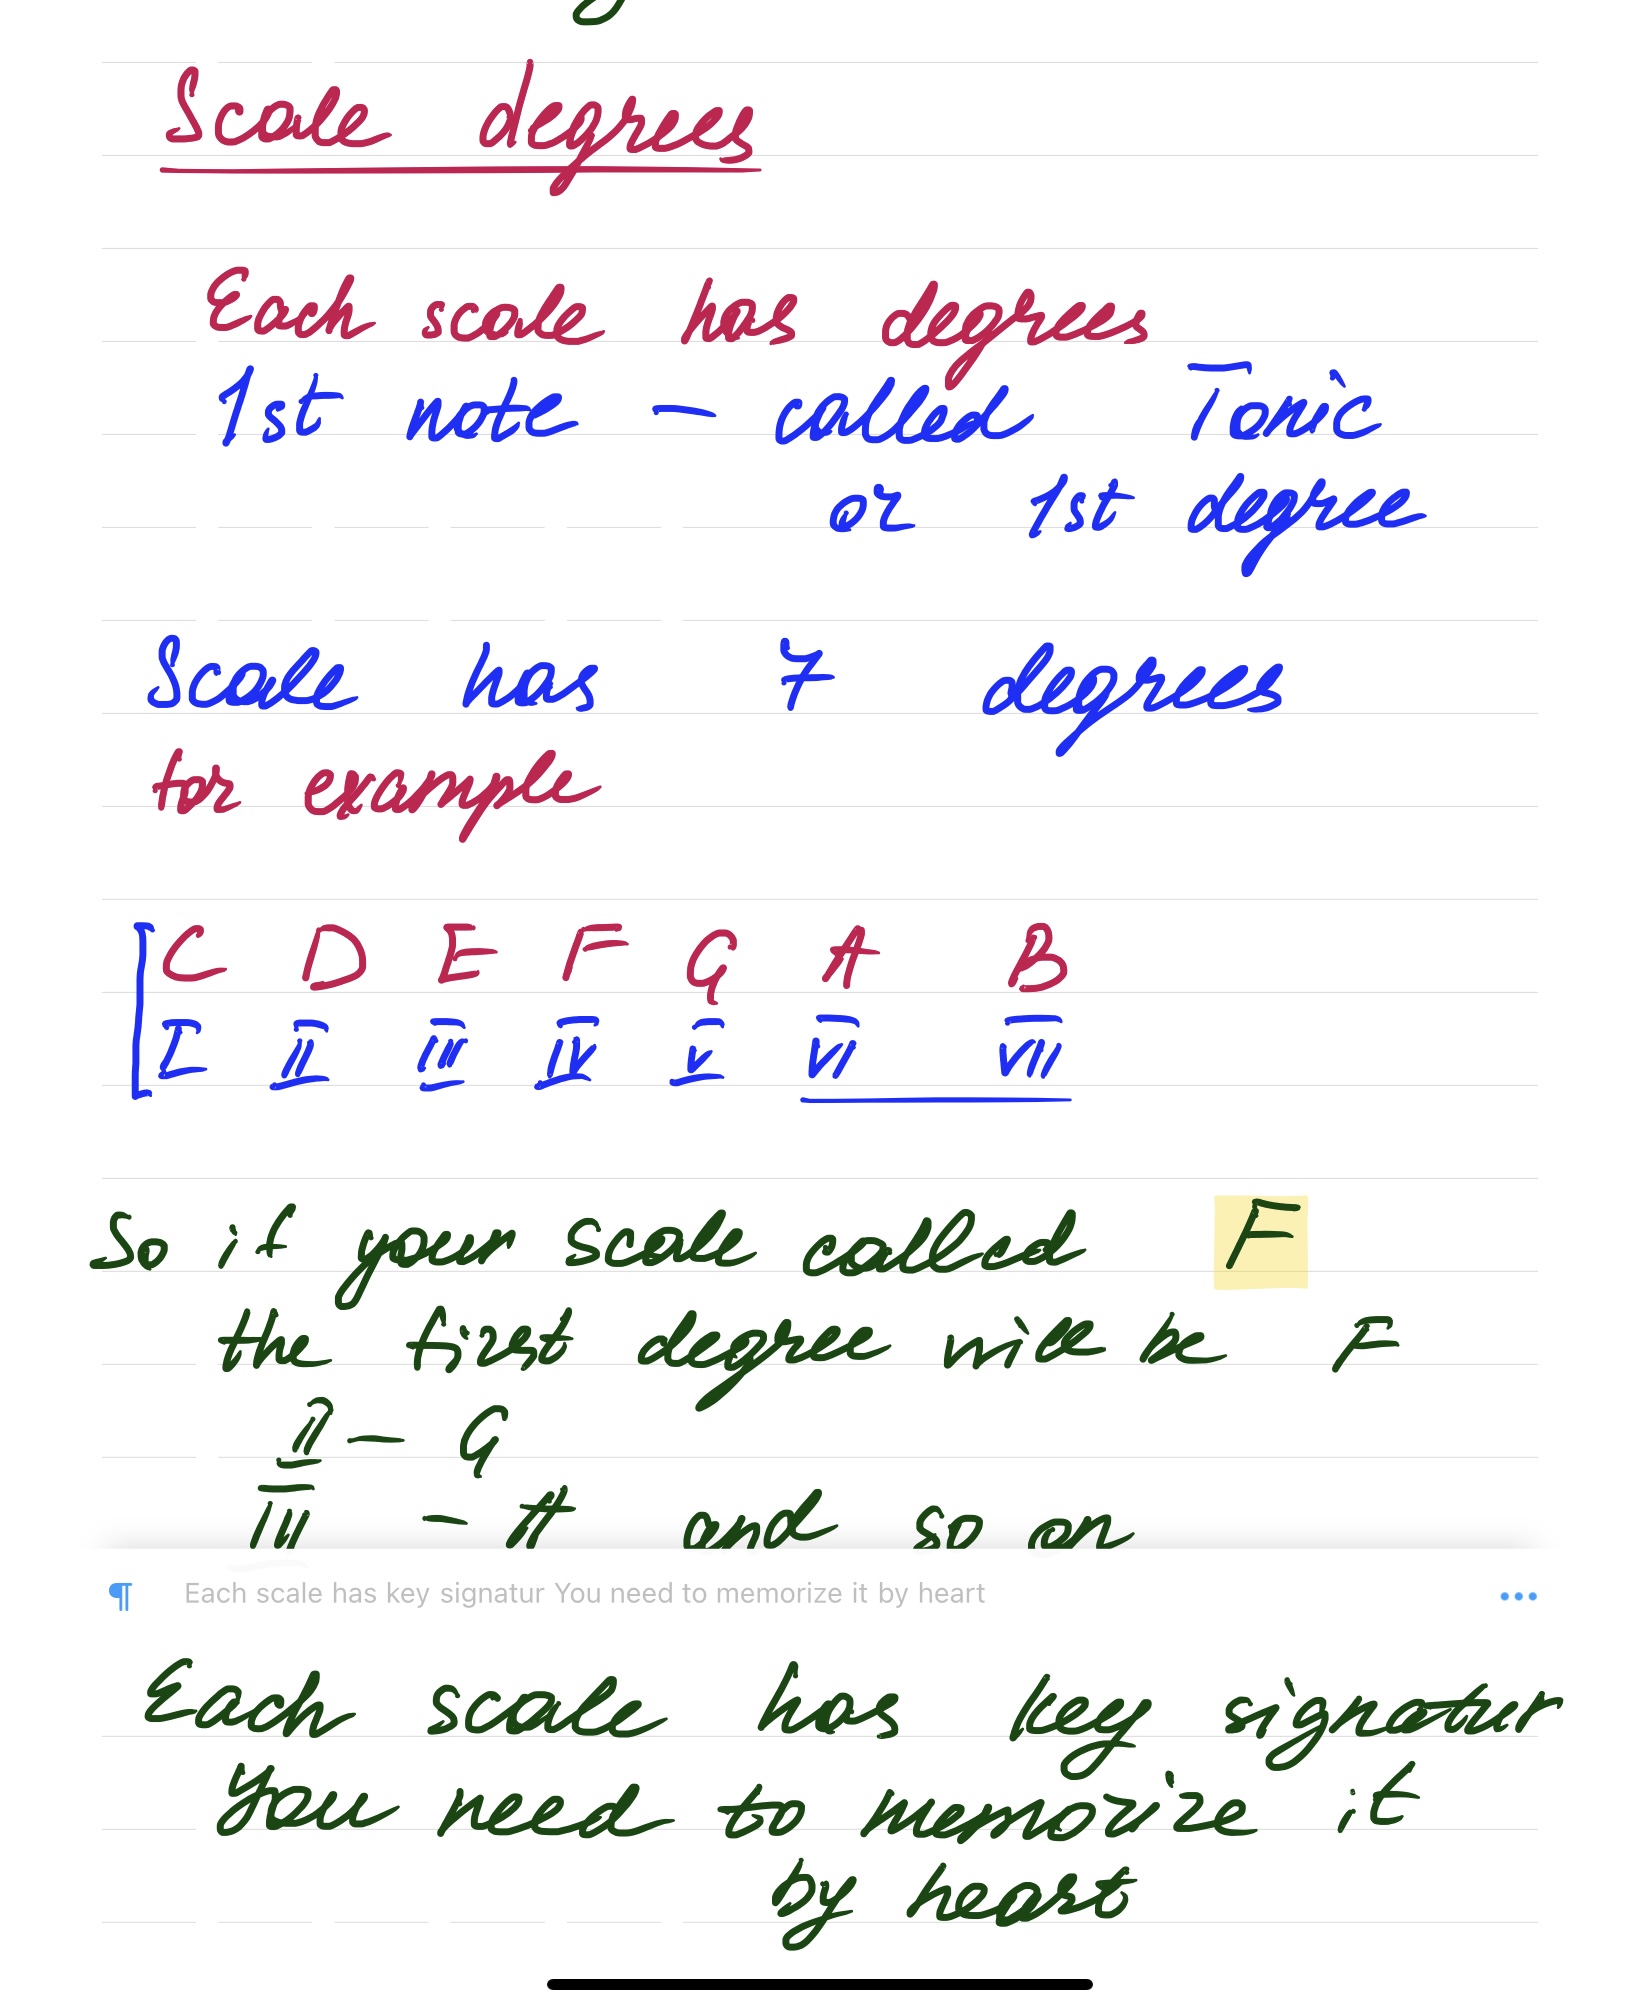 Scale degrees
Each scale has degrees
1st note – called Tonic
or 1st degree
Scale has 7 degrees
for example
C D E F G A B
I II III IV V VI VII
So if your scale called F
the first degree will be F
II – G
III – A and so on
¶ Each scale has key signatur You need to memorize it by heart
Each scale has key signatur
You need to memorize it
by heart